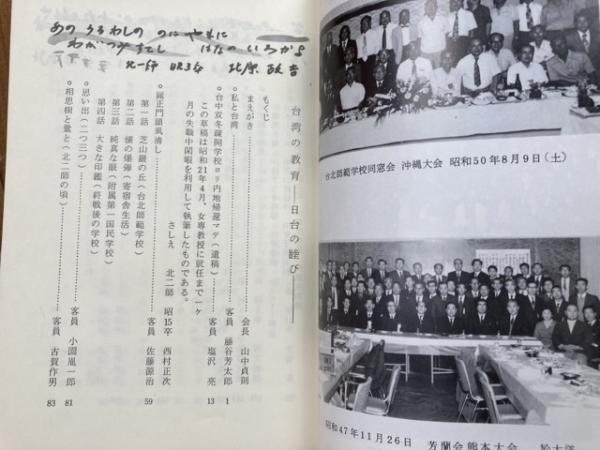 あのうるわしの のに やもに
わがつみすてし はなの いろかよ
北一師 昭3卒 北原
台湾の教育――日台の睦び――
もくじ
まえがき 会長 山中貞則
○私と台湾 客員 藤谷芳太郎 1
○台中双冬疎開学校ヨリ内地帰還マデ(遺稿) 客員 塩沢 亮 13
この草稿は昭和21年4月、女専教授に就任まで一ヶ
月の失職中閑暇を利用して執筆したものである。
さしえ 北二師 昭15卒 西村正次
○国正門頭風清し 客員 佐藤源治 59
第一話 芝山巖の丘(台北師範学校)
第二話 横の爆弾(寄宿舎生活)
第三話 純真な眼(附属第一国民学校)
第四話 大きな印鑑(終戦後の学校)
○思い出(二つ三つ) 客員 小園嵐一郎 81
○相思樹と螢と(北二師の頃) 客員 古賀作男 83
台北師範学校同窓会 沖縄大会 昭和50年8月9日(土)
昭和47年11月26日 芳蘭会熊本大会